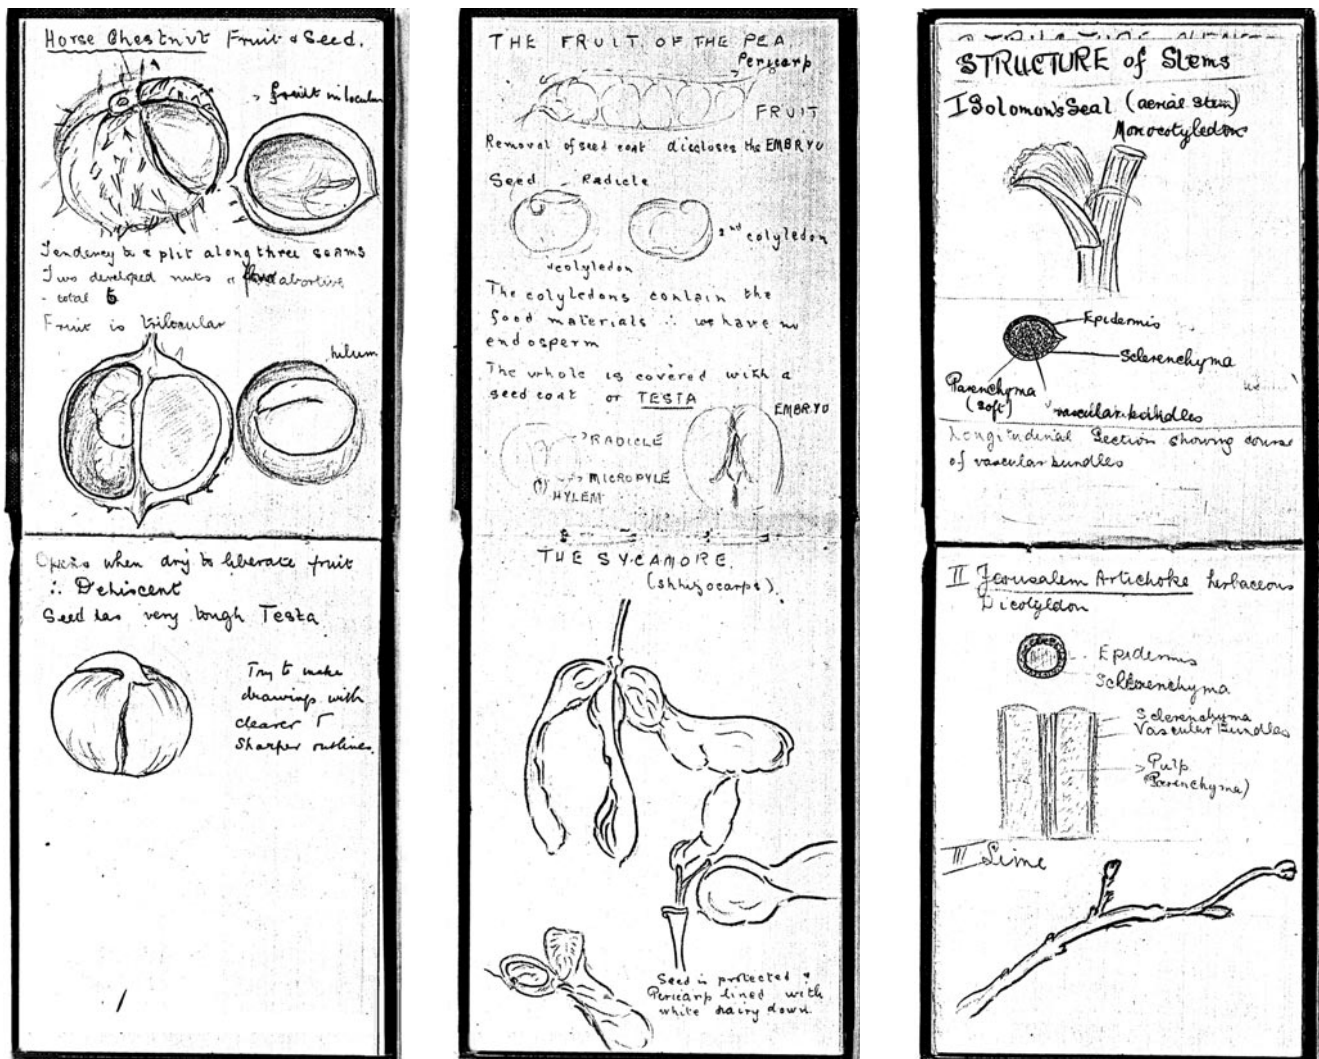 Horse Chestnut Fruit & Seed.
fruit
Tendency to split along three seams
Two developed nuts & abortive
- total 6
Fruit is trilocular
hilum
Opens when dry to liberate fruit
∴ Dehiscent
Seed has very tough Testa
Try to make
drawings with
clearer
sharper outlines.
THE FRUIT OF THE PEA.
Pericarp
FRUIT
Removal of seed coat discloses the EMBRYO
Seed Radicle
2nd cotyledon
cotyledon
The cotyledons contain the
food materials ∴ we have no
endosperm
The whole is covered with a
seed coat or TESTA
EMBRYO
RADICLE
MICROPYLE
HYLEM
THE SYCAMORE.
(shhizocarps).
Seed is protected &
Pericarp lined with
white hairy down.
STRUCTURE of Stems
I Solomon's Seal (aerial stem)
Monocotyledon
Epidermis
Sclerenchyma
Parenchyma
(soft)
vascular bundles
Longitudinal Section showing course
of vascular bundles
II Jerusalem Artichoke herbaceous
Dicotyldon
Epidermis
Schlerenchyma
Sclerenchyma
Vascular Bundles
Pulp
Parenchyma)
III Lime